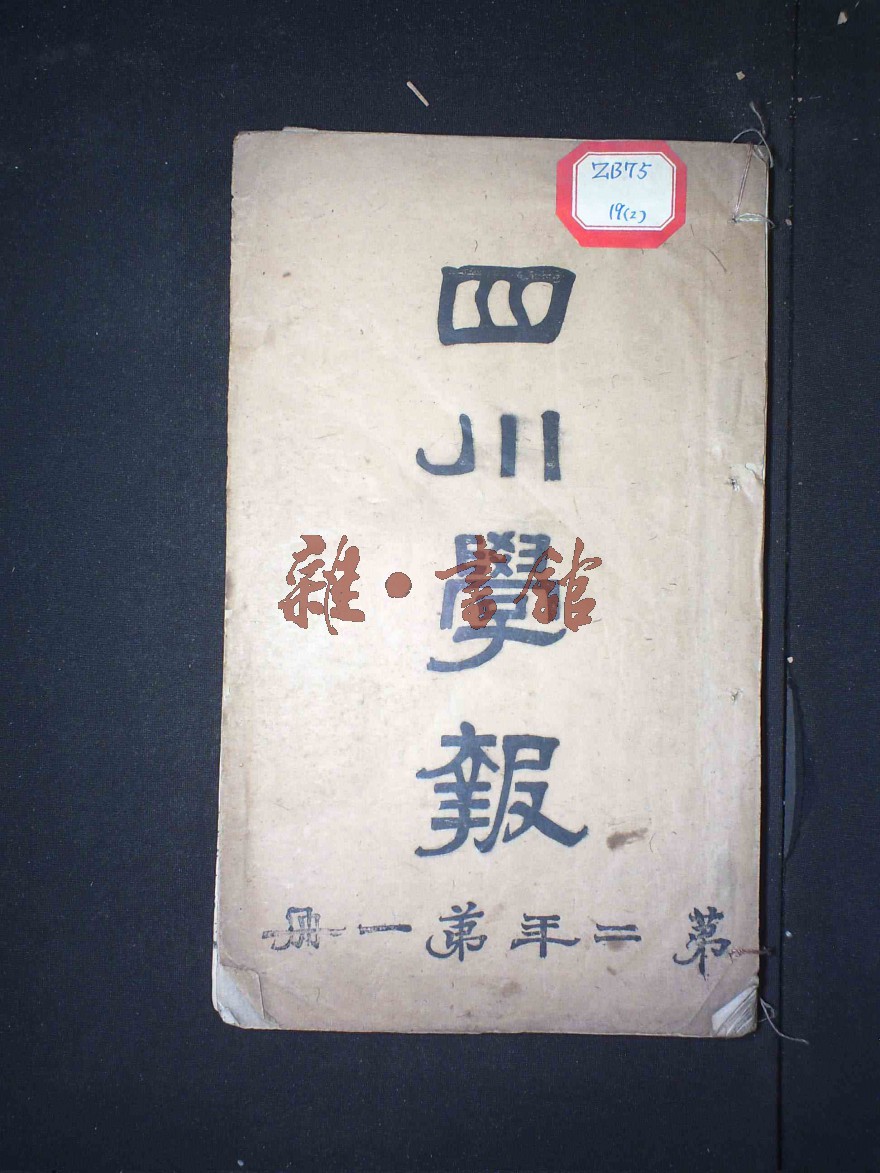 ZB75
19(2)
四川學報
雜·書館
第二年第一冊